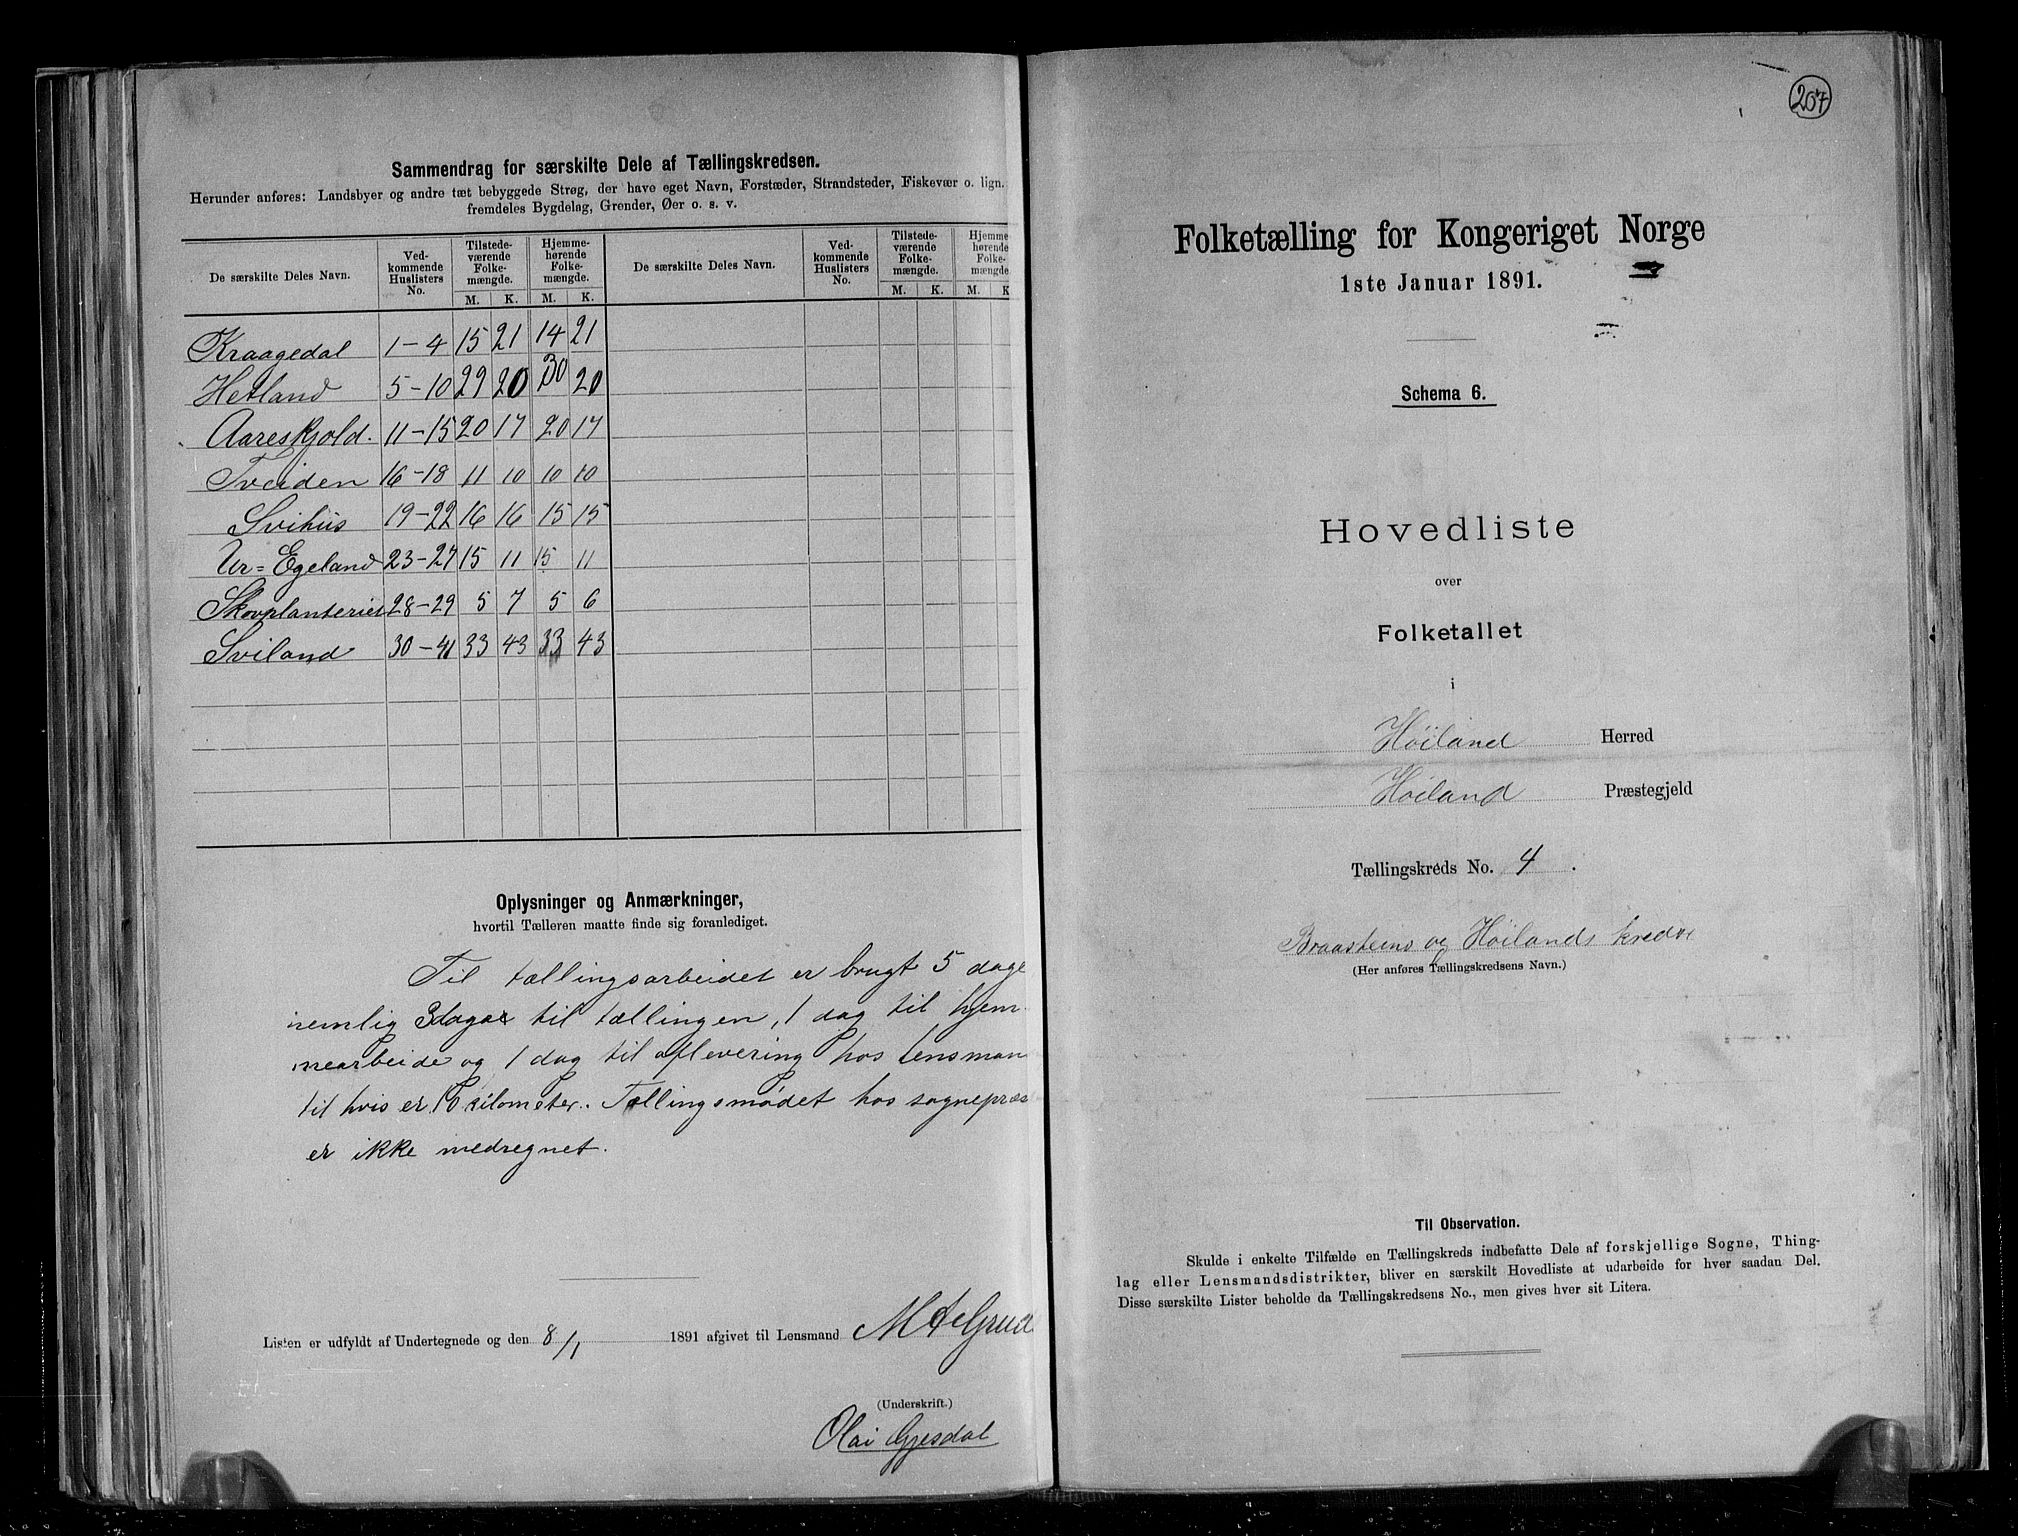 Sammendrag for særskilte Dele af Tællingskredsen.
Herunder anføres: Landsbyer og andre tæt bebyggede Strøg, der have eget Navn, Forstæder, Strandsteder, Fiskevær o. lign.
fremdeles Bygdelag, Grender, Øer o. s. v.
De særskilte Deles Navn. Ved-kommende Huslisters No. Tilstede-værende Folke-mængde. Hjemme-hørende Folke-mængde. De særskilte Deles Navn. Ved-kommende Huslisters No. Tilstede-værende Folke-mængde. Hjemme-hørende Folke-mængde.
M. K. M. K. M. K. M. K
Kraagedal 1-4 15 21 14 21
Hetland 5-10 29 20 30 20
Aareskjold. 11-15 20 17 20 17
Tveiden 16-18 11 10 10 10
Svihus 19-22 16 16 15 15
Ur=Egeland 23-27 15 11 15 11
Skovplanteriet 28-29 5 7 5 6
Sviland 30-41 33 43 33 43
Oplysninger og Anmærkninger,
hvortil Tælleren maatte finde sig foranlediget.
Til tællingsarbeidet er brugt 5 dage
nemlig 3 dage til tællingen, 1 dag til hjem-
mearbeide og 1 dag til aflevering hos lensman
til hvis er 10 kilometer. Tællingsmødet hos sognepræs
er ikke medregnet.
Listen er udfyldt af Undertegnede og den 8/1 1891 afgivet til Lensmand
(Underskrift.)
Olai Gjesdal
207
Folketælling for Kongeriget Norge
1ste Januar 1891.
Schema 6.
Hovedliste
over
Folketallet
i
Høiland Herred
Høiland Præstegjeld
Tællingskreds No. 4.
Braasteins og Høilands kredse
(Her anføres Tællingskredsens Navn.)
Til Observation.
Skulde i enkelte Tilfælde en Tællingskreds indbefatte Dele af forskjellige Sogne, Thing-
lag eller Lensmandsdistrikter, bliver en særskilt Hovedliste at udarbeide for hver saadan Del.
Disse særskilte Lister beholde da Tællingskredsens No., men gives hver sit Litera.